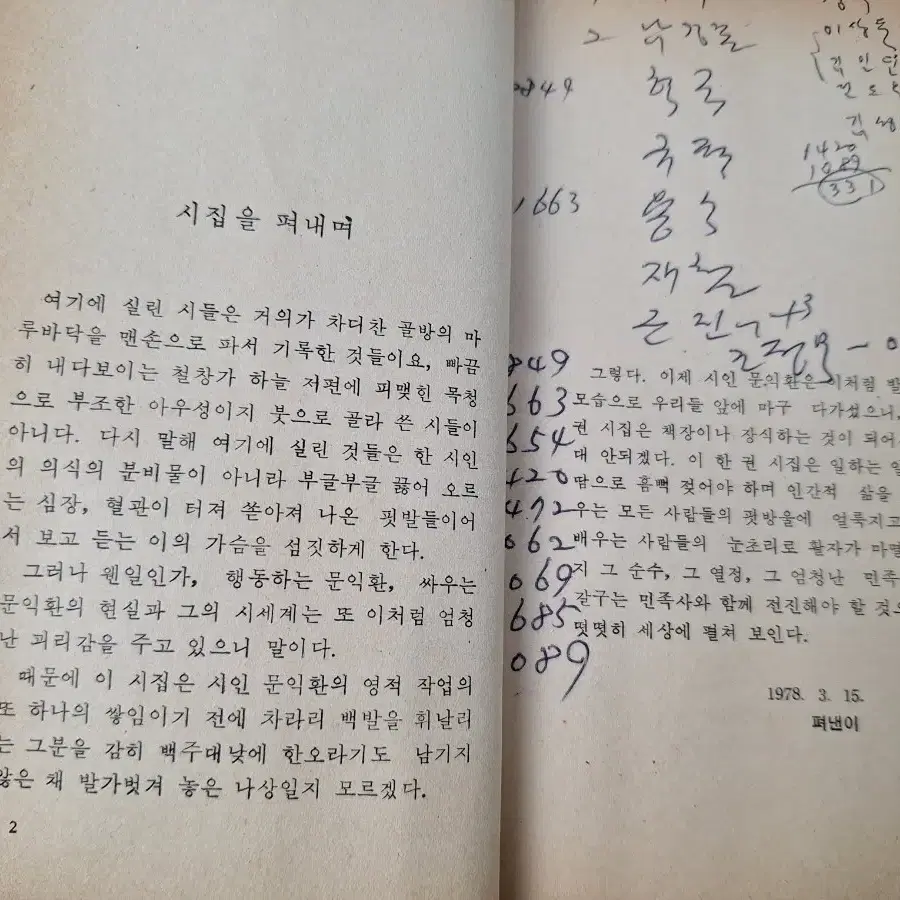 시집을 펴내며
여기에 실린 시들은 거의가 차디찬 골방의 마
루바닥을 맨손으로 파서 기록한 것들이요, 빠끔
히 내다보이는 철창가 하늘 저편에 피맺힌 목청
으로 부조한 아우성이지 붓으로 골라 쓴 시들이
아니다. 다시 말해 여기에 실린 것들은 한 시인
의 의식의 분비물이 아니라 부글부글 끓어 오르
는 심장, 혈관이 터져 쏟아져 나온 핏발들이어
서 보고 듣는 이의 가슴을 섬짓하게 한다.
그러나 웬일인가, 행동하는 문익환, 싸우는
문익환의 현실과 그의 시세계는 또 이처럼 엄청
난 괴리감을 주고 있으니 말이다.
때문에 이 시집은 시인 문익환의 영적 작업의
또 하나의 쌓임이기 전에 차라리 백발을 휘날리
는 그분을 감히 백주대낮에 한오라기도 남기지
않은 채 발가벗겨 놓은 나상일지 모르겠다.
2
849
1663
1420
1089
331
849
663
654
420
472
062
069
685
089
그렇다. 이제 시인 문익환은 이처럼 발
모습으로 우리들 앞에 마구 다가섰으니,
권 시집은 책장이나 장식하는 것이 되어
대 안되겠다. 이 한 권 시집은 일하는
땀으로 흠뻑 젖어야 하며 인간적 삶을
우는 모든 사람들의 핏방울에 얼룩지고
배우는 사람들의 눈초리로 활자가 마멸
지 그 순수, 그 열정, 그 엄청난 민족
갈구는 민족사와 함께 전진해야 할 것
떳떳히 세상에 펼쳐 보인다.
1978. 3. 15.
펴낸이